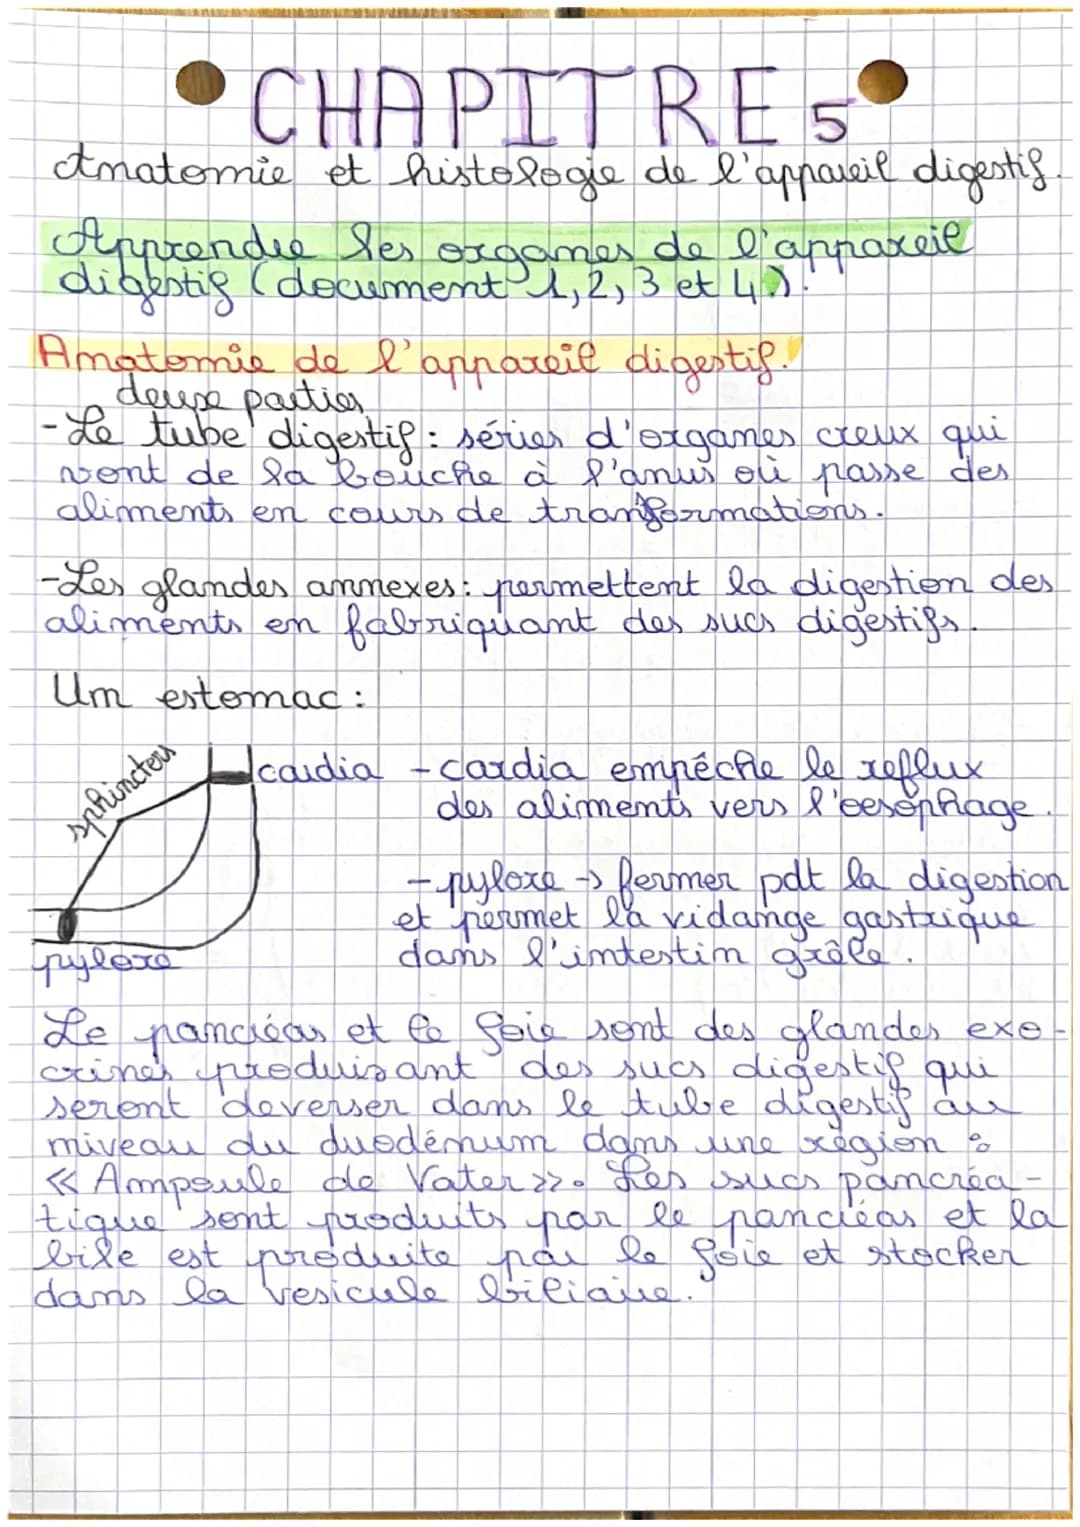 CHAPITRE 5
Anatomie et histologie de l'appareil digestif.
Apprendre les organes de l'appareil
digestif (document 1, 2, 3 et 4).
Anatomie de l'appareil digestif.
deux parties
- Le tube digestif : séries d'organes creux qui
vont de la bouche à l'anus où passe des
aliments en cours de transformations.
- Les glandes annexes : permettent la digestion des
aliments en fabriquant des sucs digestifs.
Um estomac :
sphincters
cardia
- cardia empêche le reflux
des aliments vers l'oesophage.
- pylore -> fermer pdt la digestion
et permet la vidange gastrique
dans l'intestin grêle.
pylore
Le pancréas et le foie sont des glandes exo-
crines produisant des sucs digestif qui
seront deverser dans le tube digestif au
niveau du duodénum dans une région :
« Ampoule de Vater ». Les sucs pancréa-
tique sont produits par le pancréas et la
bile est produite par le foie et stocker
dans la vesicule biliaire.